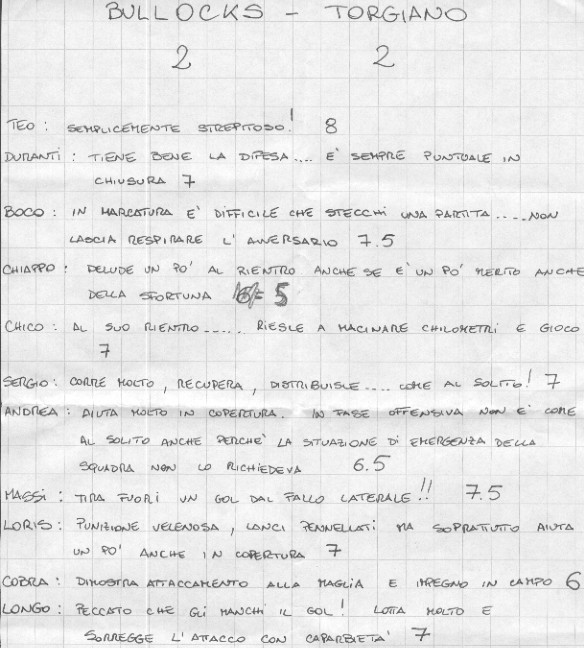 BULLOCKS - TORGIANO
2 2
TEO: SEMPLICEMENTE STREPITOSO! 8
DURANTI: TIENE BENE LA DIFESA.... E' SEMPRE PUNTUALE IN
CHIUSURA 7
BOCO: IN MARCATURA E' DIFFICILE CHE STECCHI UNA PARTITA.....NON
LASCIA RESPIRARE L'AVVERSARIO 7.5
CHIAPPO: DELUDE UN PO' AL RIENTRO ANCHE SE E' UN PO' MERITO ANCHE
DELLA SFORTUNA 5
CHICO: AL SUO RIENTRO...... RIESCE A MACINARE CHILOMETRI E GIOCO
7
SERGIO: CORRE MOLTO, RECUPERA, DISTRIBUISCE.... COME AL SOLITO! 7
ANDREA: AIUTA MOLTO IN COPERTURA. IN FASE OFFENSIVA NON E' COME
AL SOLITO ANCHE PERCHE' LA SITUAZIONE DI EMERGENZA DELLA
SQUADRA NON LO RICHIEDEVA 6.5
MASSI: TIRA FUORI UN GOL DAL FALLO LATERALE!! 7.5
LORIS: PUNIZIONE VELENOSA, LANCI PENNELLATI MA SOPRATTUTTO AIUTA
UN PO' ANCHE IN COPERTURA 7
COBRA: DIMOSTRA ATTACCAMENTO ALLA MAGLIA E IMPEGNO IN CAMPO 6
LONGO: PECCATO CHE GLI MANCHI IL GOL! LOTTA MOLTO E
SORREGGE L'ATTACCO CON CAPARBIETA' 7